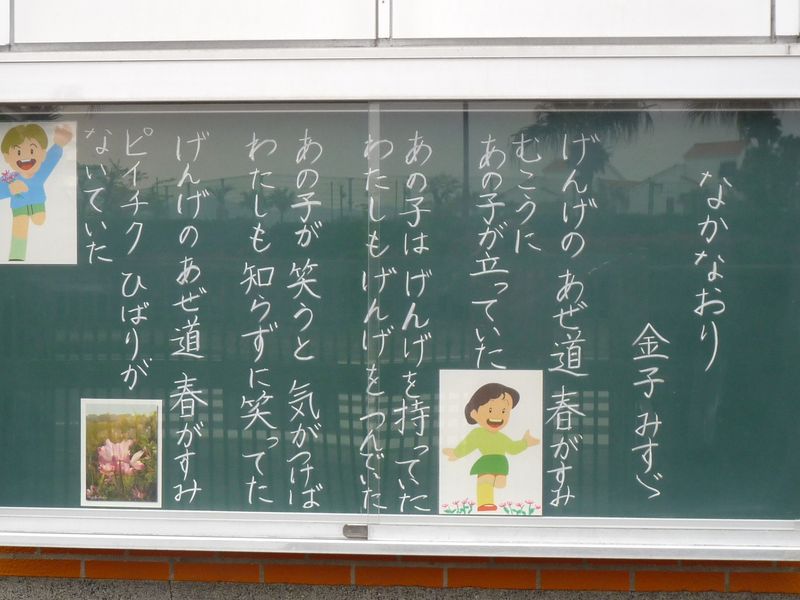 なかなおり
金子 みすゞ
げんげの あぜ道 春がすみ
むこうに
あの子が立っていた
あの子は げんげを持っていた
わたしもげんげを つんでいた
あの子が 笑うと 気がつけば
わたしも 知らずに 笑ってた
げんげの あぜ道 春がすみ
ピイチク ひばりが
ないていた